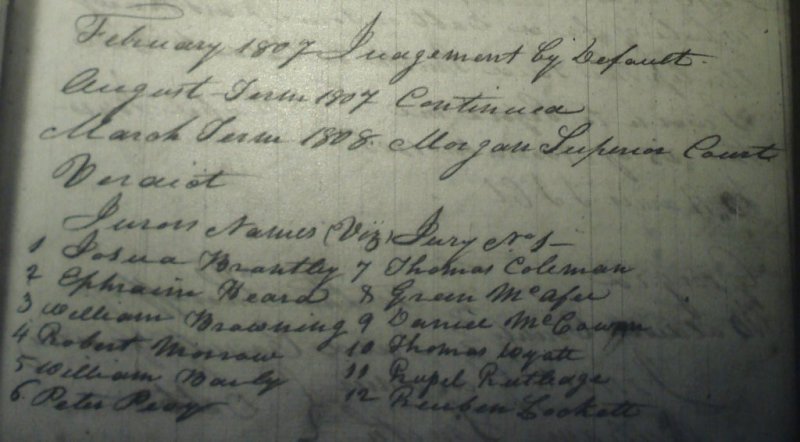 February 1807 Judgement by Default.
August Term 1807 Continued
March Term 1808. Morgan Superior Court
Verdict
Jurors Names (Viz) Jury No 1
1 Josua Brantley 7 Thomas Coleman
2 Ephraim Heard 8 Green McAfee
3 William Browning 9 Daniel McCowan
4 Robert Morrow 10 Thomas Wyatt
5 William 11 Rutledge
6 Peter 12 Reuben Lockett